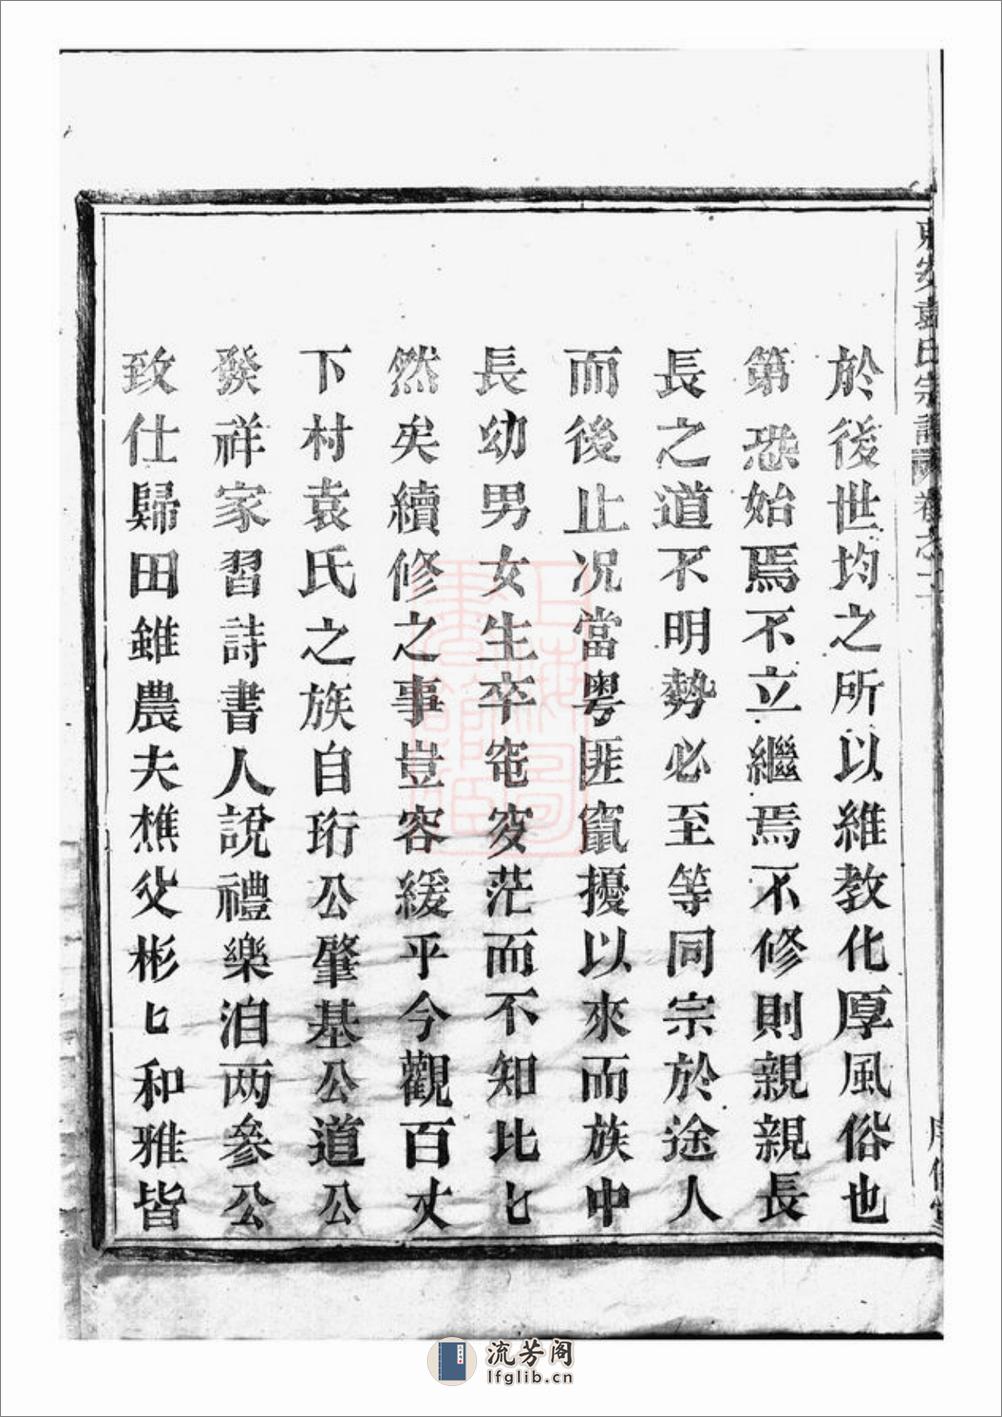 於後世均之所以維教化厚風俗也
第恐始焉不立繼焉不修則親親長
長之道不明勢必至等同宗於途人
而後止况當粤匪竄擾以來而族中
長幼男女生卒窀窆茫而不知比匕
然矣續修之事豈容緩乎今觀百丈
下村袁氏之族自珩公肇基公道公
發祥家習詩書人說禮樂洎两參公
致仕歸田雖農夫樵父彬匕和雅皆
流芳阁
lfglib.cn